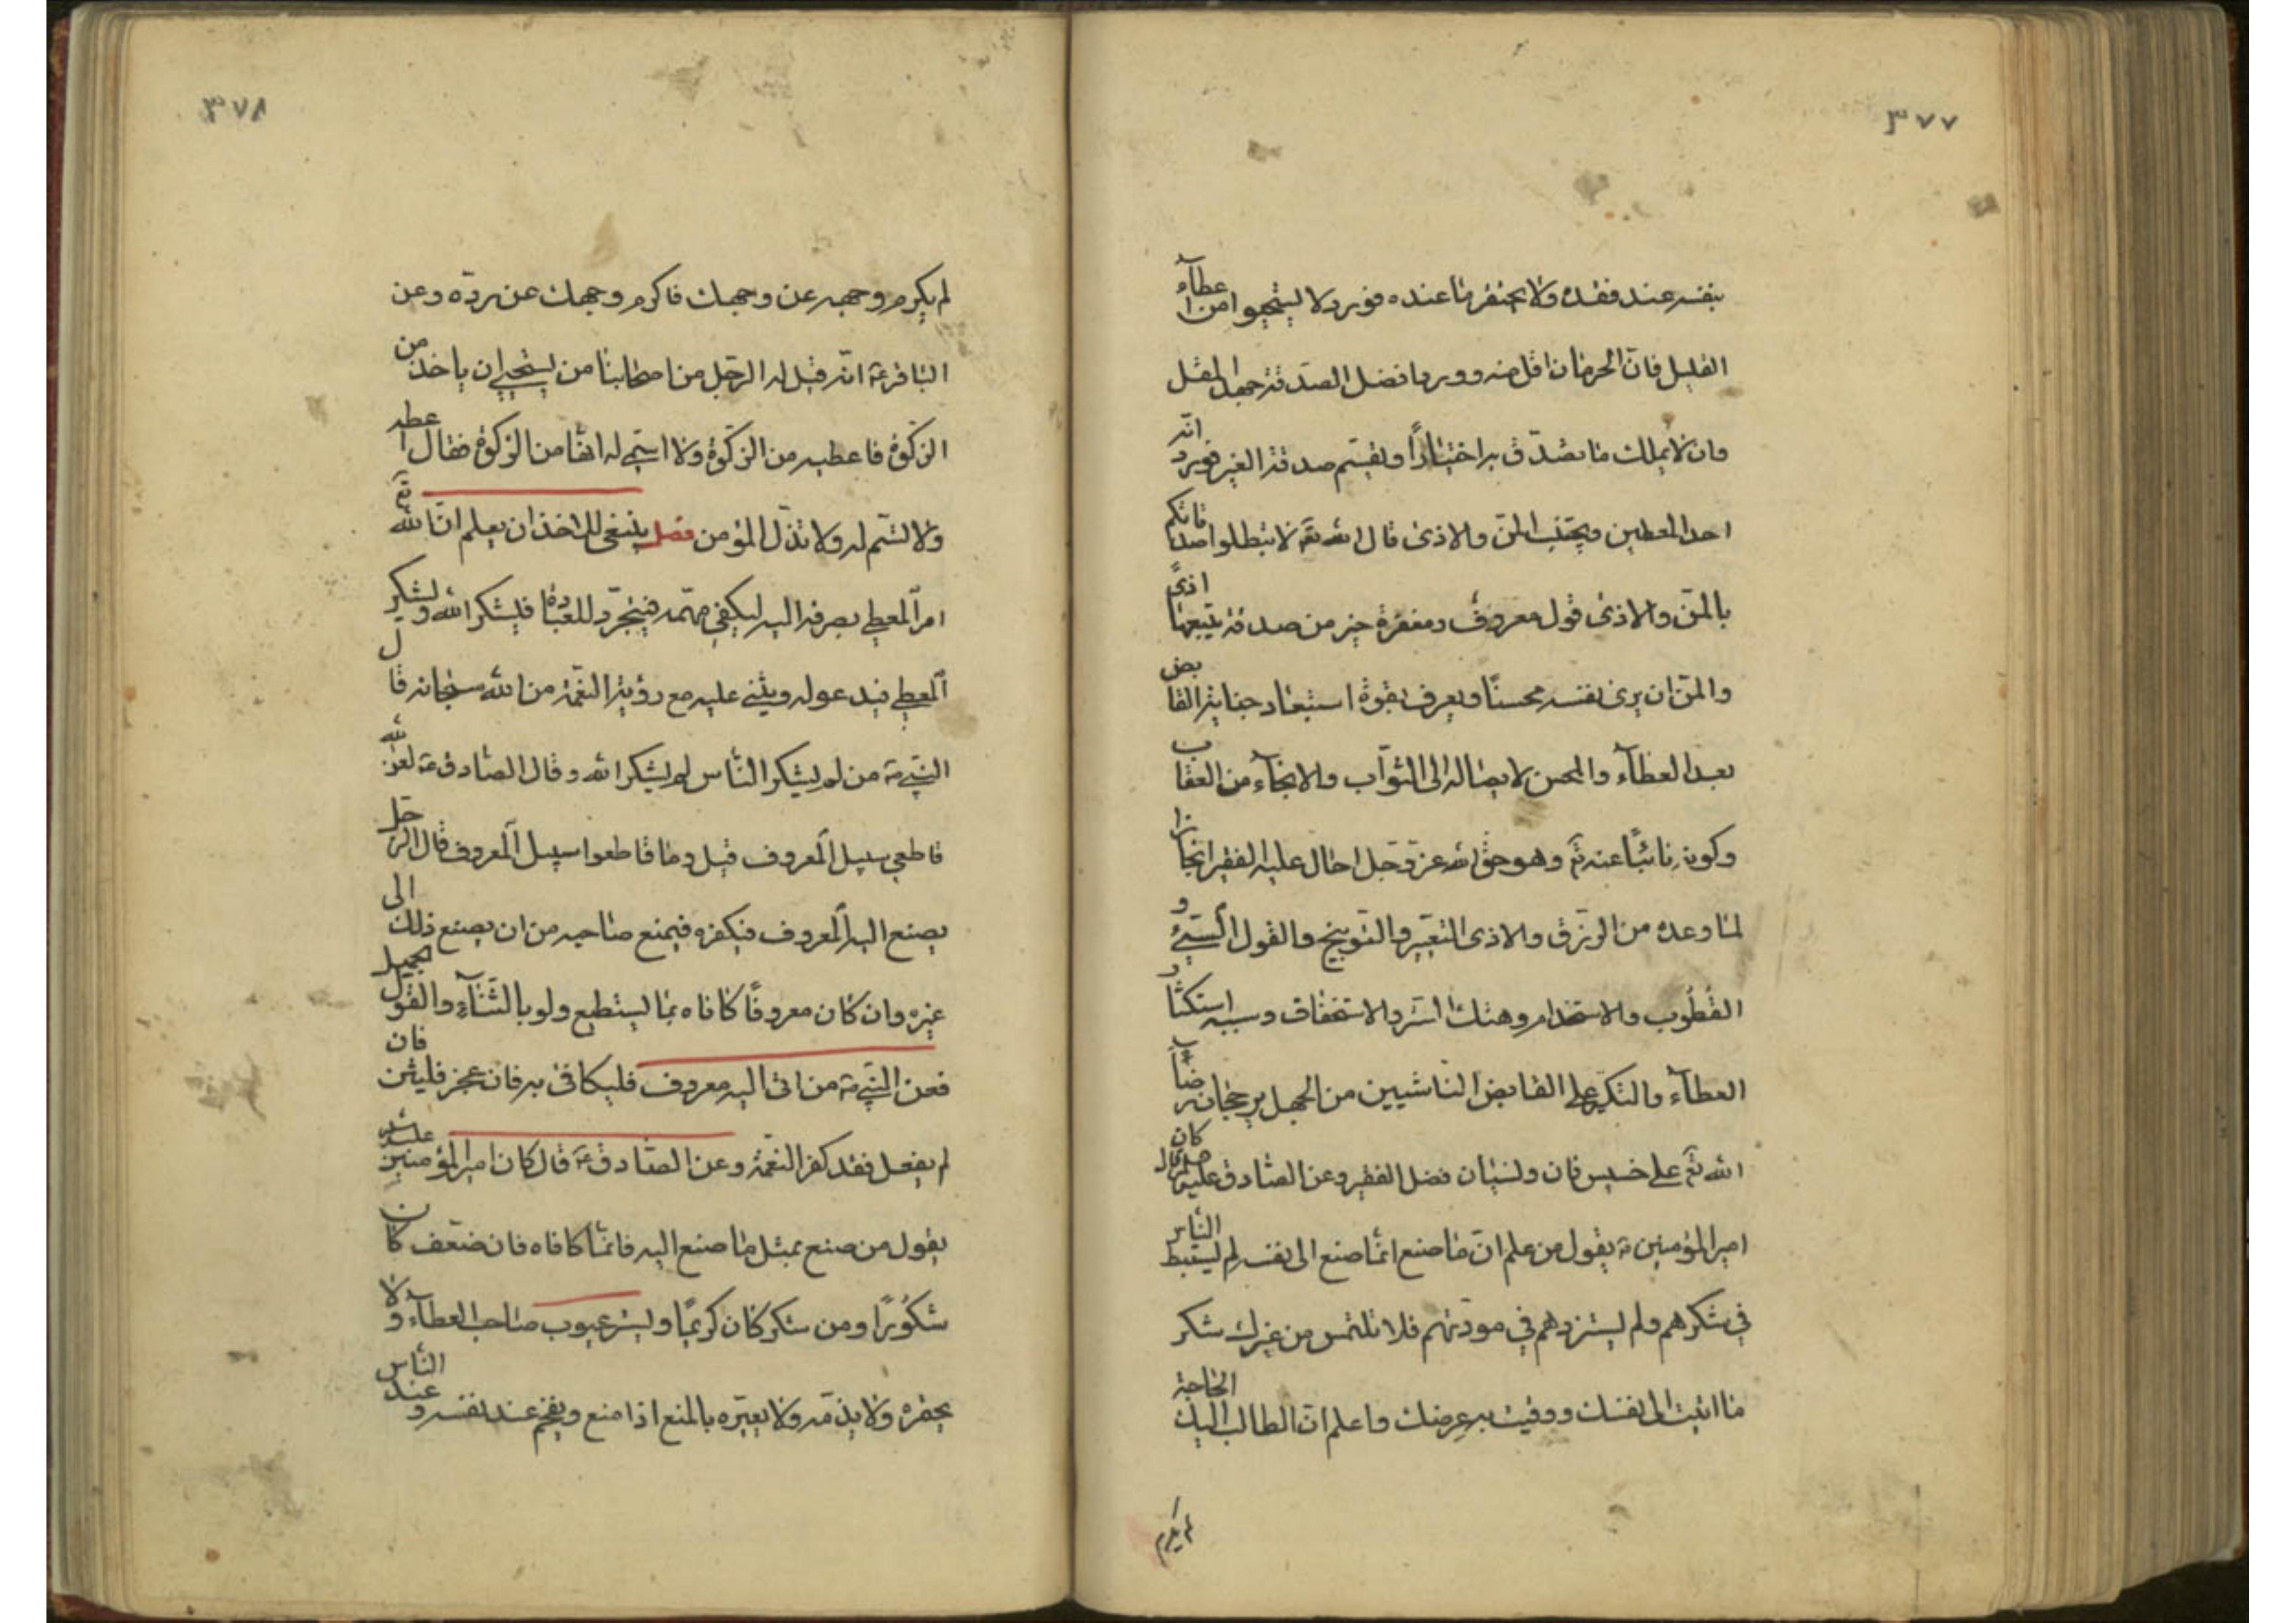 ٣٧٧
بنفسه عند فقده ولا يحتقر ما عنده فورد لا تستحيوا من اعطاء
القليل فان الحرمان اقل منه وورد افضل الصدقة جهد المقل
وان لا يملك ما يتصدق به اختيارًا ويقسم صدقة الغير فورد انه
احد المعطين ويجتنب المن والاذى قال الله تع لا تبطلوا صدقاتكم
بالمن والاذى قول معروف ومغفرة خير من صدقة يتبعها اذىً
والمن ان يرى نفسه محسنًا ويعرف بقوة استبعاد جناية القابض
بعد العطآء والمحسن لايصاله الى الثواب والانجآء من العقاب
وكونه نائبًا عنه تع وهو حق الله عز وجل احال عليه الفقير انجازا
لما وعده من الرزق والاذى التعيير والتوبيخ والقول السيئ و
القُطُوب والاستخدام وهتك الستر والاستخفاف وسببه استكثار
العطآء والتكبر على القابض الناشيين من الجهل برجحان رضاء
الله تع على خسيس فان ونسيان فضل الفقير وعن الصادق عليه السلام قال كان
امير المؤمنين ع يقول من علم ان ما صنع انما صنع الى نفسه لم يستبط الناس
في شكرهم ولم يستزدهم في مودتهم فلا تلتمس من غيرك شكر
ما اتيت الى نفسك ووقيت به عرضك واعلم ان الطالب اليك الحاجة
لم يكرم
٣٧٨
لم يكرم وجهه عن وجهك فاكرم وجهك عن رده وعن
الباقر ع انه قيل له الرجل من اصحابنا من يستحيي ان ياخذ من
الزكوة فاعطيه من الزكوة ولا اسمي له انها من الزكوة فقال اعطه
ولا تسم له ولا تذل المؤمن فصل ينبغي للاخذ ان يعلم ان الله تع
امر المعطي بصرفه اليه ليكفي مهمه فيتجرد للعبادة فليشكر الله و ليشكر
المعطي فيدعو له ويثني عليه مع رؤية النعمة من الله سبحانه قال
النبي ص من لم يشكر الناس لم يشكر الله وقال الصادق ع لعن الله
قاطعي سبيل المعروف قيل وما قاطعوا سبيل المعروف قال الرجل
يصنع اليه المعروف فيكفره فيمنع صاحبه من ان يصنع ذلك الى
غيره وان كان معروفًا كافاه بما يستطيع ولو بالثنآء والقول الجميل
فعن النبي ص من اتى اليه معروف فليكافئ به فان عجز فليثن فان
لم يفعل فقد كفر النعمة وعن الصادق ع قال كان امير المؤمنين عليه
يقول من صنع بمثل ما صنع اليه فانما كافاه فان ضعّف كان
شكُورًا ومن شكر كان كريمًا ويستر عيوب صاحب العطآء ولا
يحقره ولا يذمه ولا يعيره بالمنع اذا منع ويفخم عند نفسه و عند الناس